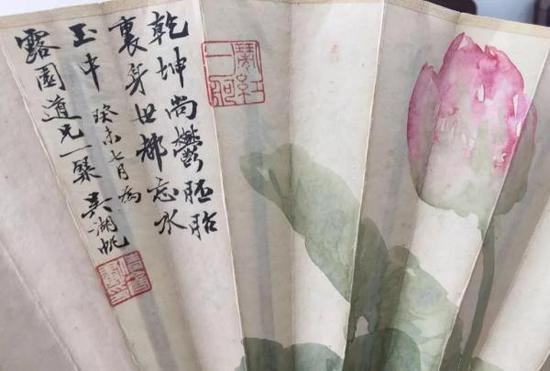 乾坤尚鬱胚胎
裏身世都忘水
玉中 癸未七月為
露園道兄一粲 吳湖帆